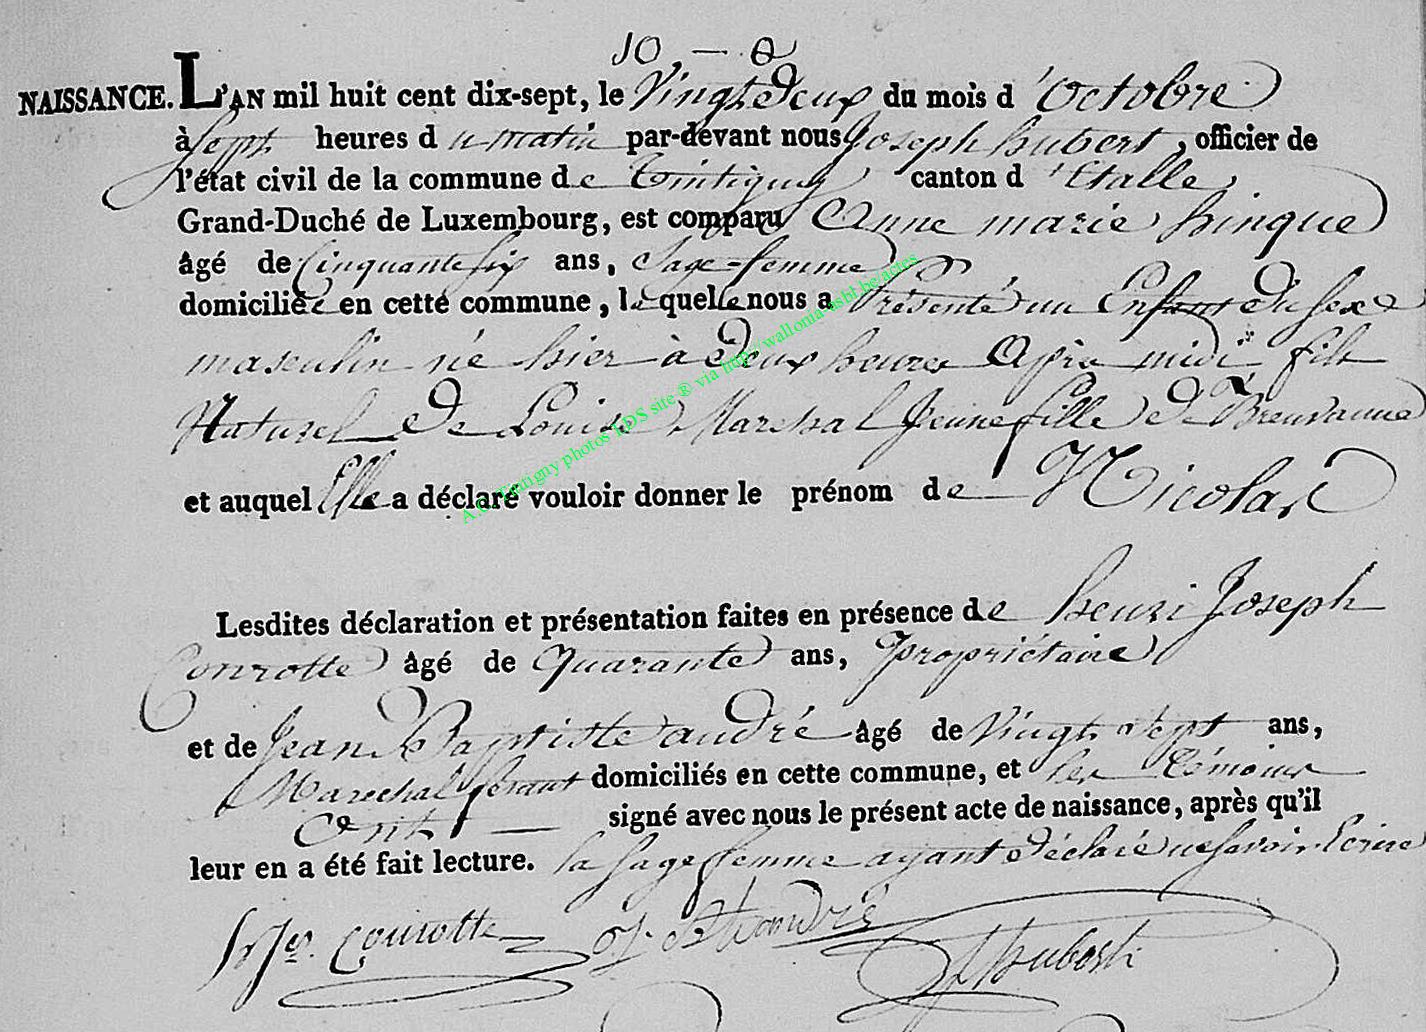 10 — 8
NAISSANCE. L'AN mil huit cent dix-sept, le Vingt Deux du mois d'Octobre
à Sept heures du matin par-devant nous Joseph hubert, officier de
l'état civil de la commune de Tintigny canton d'Etalle
Grand-Duché de Luxembourg, est comparu Anne marie hinque
âgé de Cinquante six ans, Sage-femme
domiciliée en cette commune, laquelle nous a Présenté un Enfant du sexe
masculin né hier à Deux heures Après midi fils
Naturel De Louise Marchal Jeune fille de Breuvanne
et auquel Elle a déclaré vouloir donner le prénom de Nicolas
Lesdites déclaration et présentation faites en présence de henri Joseph
Conrotte âgé de Quarante ans, Propriétaire
et de Jean Baptiste andré âgé de Vingt Sept ans,
Marechal ferant domiciliés en cette commune, et les Témoins
Ont — signé avec nous le présent acte de naissance, après qu'il
leur en a été fait lecture. la sage femme ayant Déclaré ne savoir Ecrire
hJph. Conrotte J. Bt andré JHubert
A.C. Tintigny photos LDS site ® via http://wallonia-asbl.be/actes